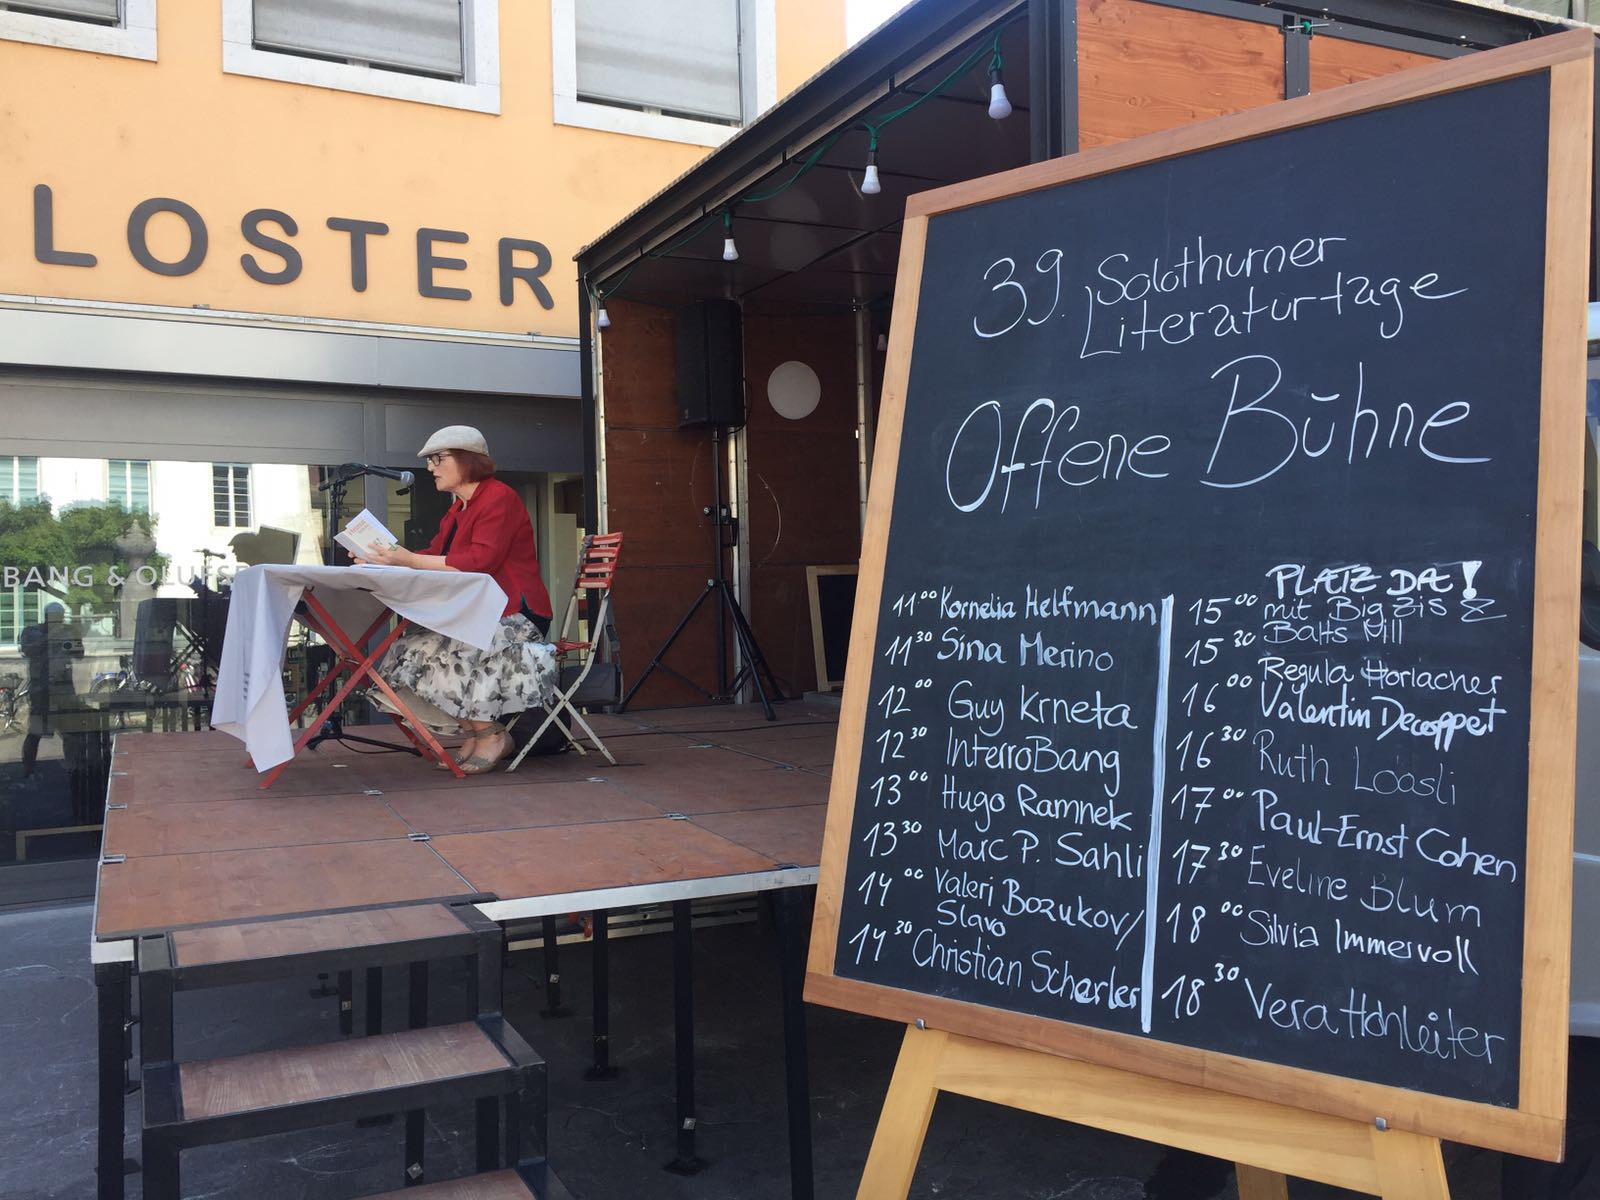 LOSTER
BANG & OLUFS
39. Solothurner
Literaturtage
Offene Bühne
11⁰⁰ Kornelia Helfmann
11³⁰ Sina Merino
12⁰⁰ Guy Krneta
12³⁰ InterroBang
13⁰⁰ Hugo Ramnek
13³⁰ Marc P. Sahli
14⁰⁰ Valeri Bozukov/
Slavo
14³⁰ Christian Scharler
PLATZ DA!
15⁰⁰ mit Big Zis &
15³⁰ Balts Nill
Regula Horlacher
16⁰⁰ Valentin Decoppet
16³⁰ Ruth Loosli
17⁰⁰ Paul-Ernst Cohen
17³⁰ Eveline Blum
18⁰⁰ Silvia Immervoll
18³⁰ Vera Hohleiter